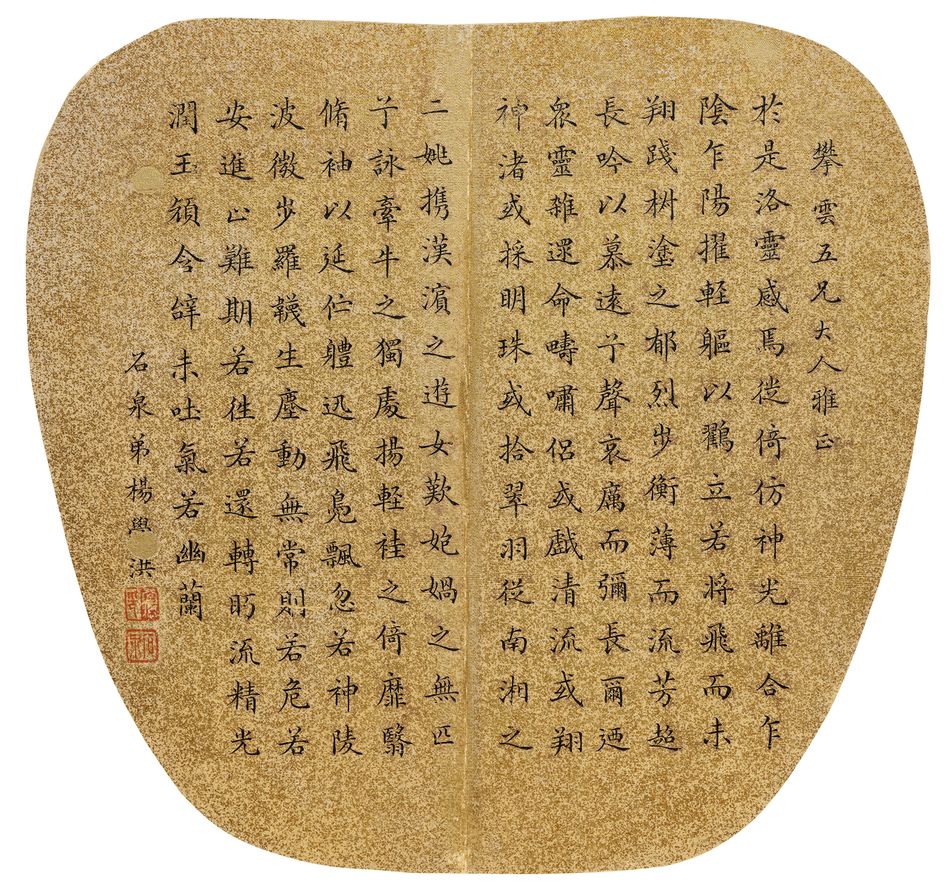 攀雲五兄大人雅正
於是洛靈感焉徙倚仿神光離合乍
陰乍陽擢軽軀以鸛立若將飛而未
翔踐椒塗之郁烈步衡薄而流芳超
長吟以慕遠兮聲哀厲而彌長爾迺
衆靈雜遝命疇嘯侶或戲清流或翔
神渚或採明珠或拾翠羽從南湘之
二姚携漢濱之遊女歎媧之無匹
兮詠牽牛之獨處揚軽袿之倚靡翳
脩袖以延伫軆迅飛鳧飄忽若神陵
波微步羅韈生塵動無常則若危若
安進止難期若往若還轉眄流精光
潤玉頎含辝未吐氣若幽蘭
石泉弟楊洪